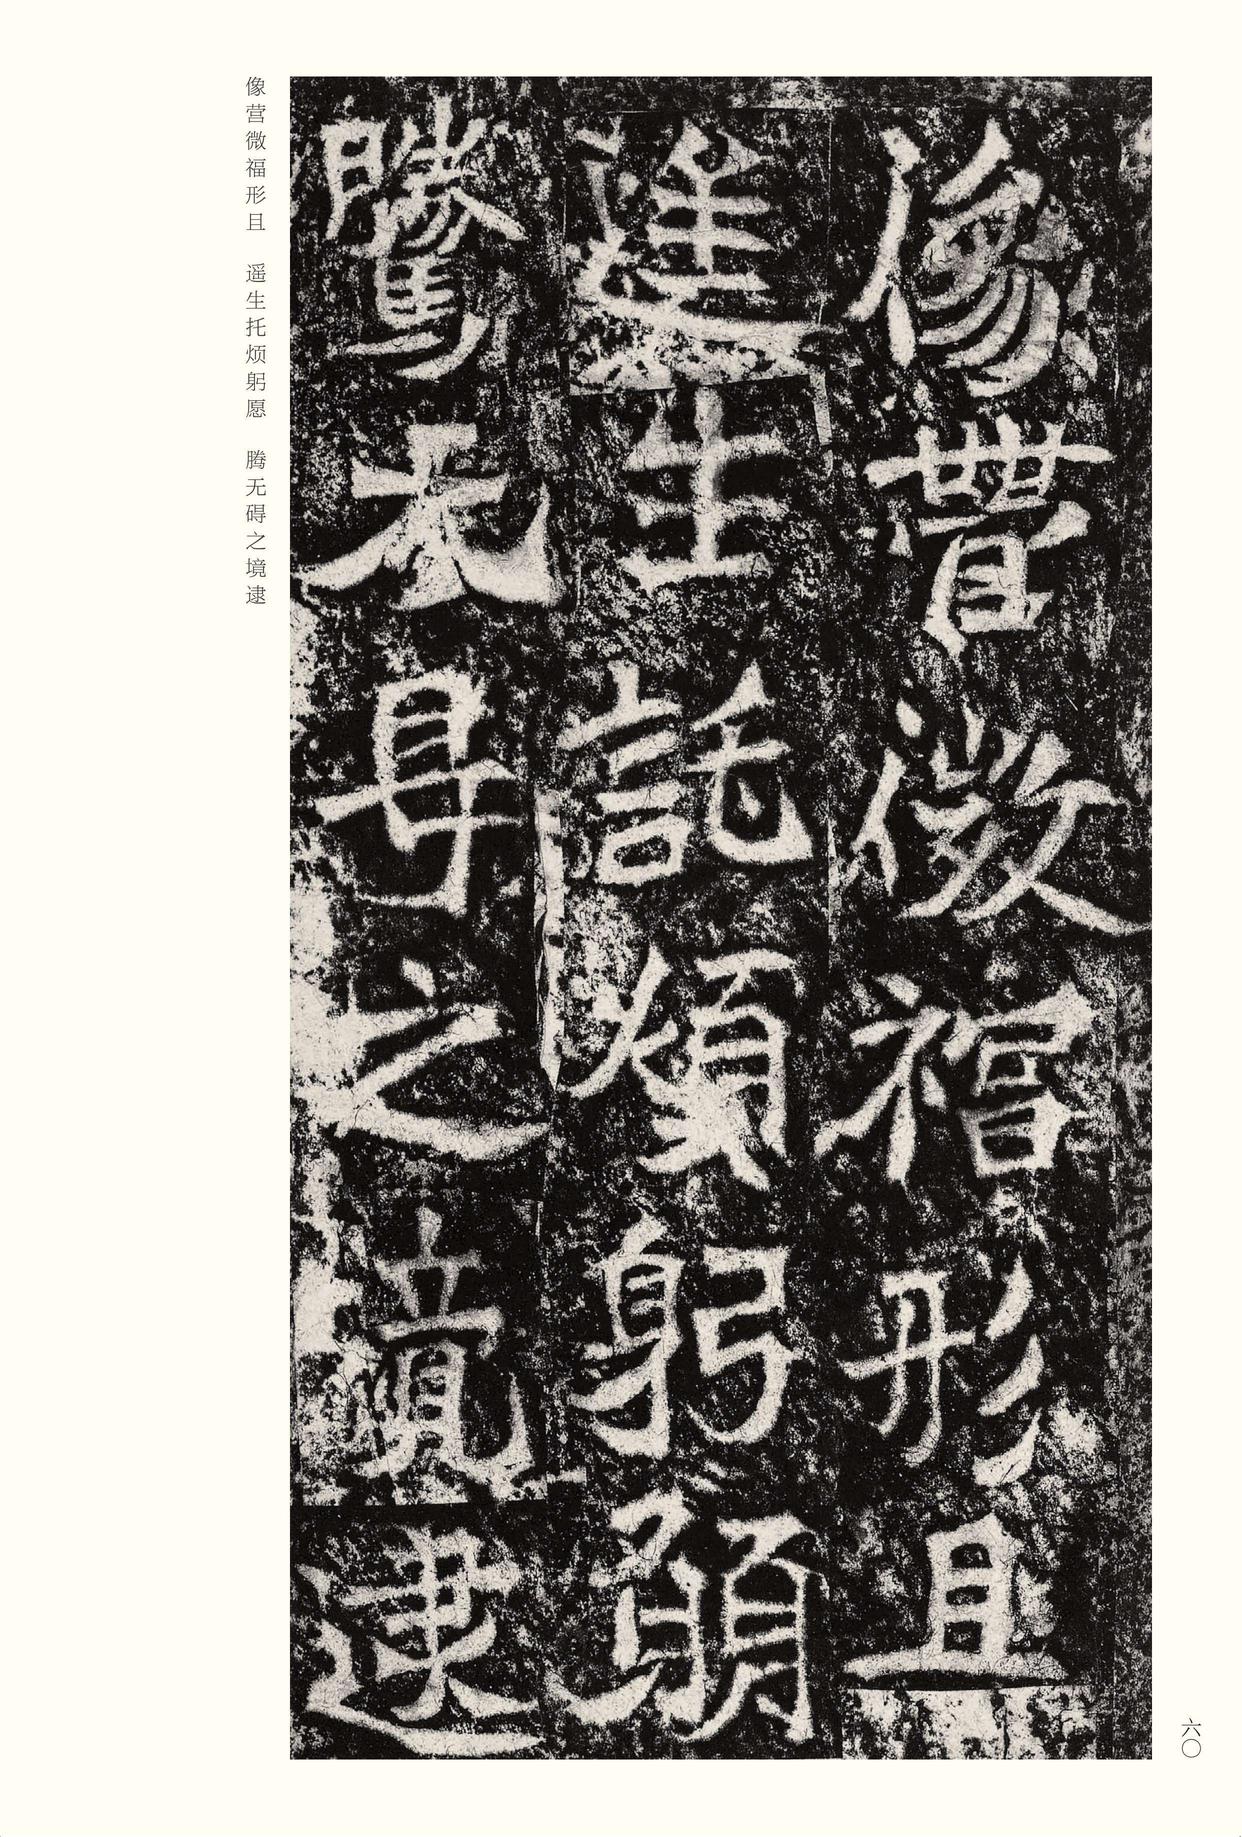 像營微福形且
生託煩躬願
騰无㝵之境逮
像营微福形且　遥生托烦躬愿　腾无碍之境逮
六〇